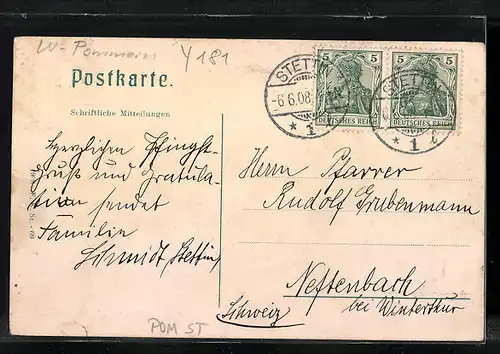 LV-Pommern
Y 181
Postkarte.
Schriftliche Mitteilungen
Herzlichen Pfingst-
gruß und Gratula-
tion sendet
Familie
Schmidt (Stettin)
5 5
5 5
DEUTSCHES REICH
DEUTSCHES REICH
STETTIN
-6.6.08
* 1
STETTIN
* 1
Herrn Pfarrer
Rudolf Grubenmann
Neftenbach
bei Winterthur
Schweiz
POM ST